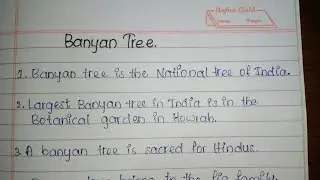 Bafna Gold
Banyan Tree.
1. Banyan tree is the National tree of India.
2. Largest Banyan tree in India is in the
Botanical garden in Howrah.
3. A banyan tree is sacred for Hindus.
belong to the fig family